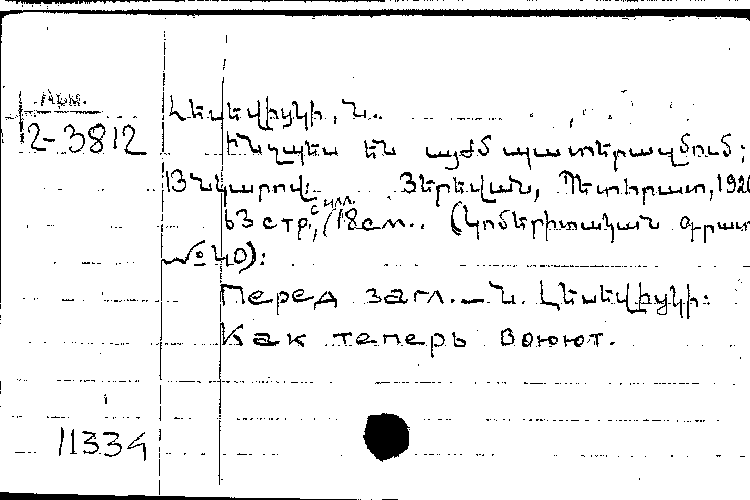 Арм.
2-3812
Լեսեվիցկի, Ն.
Ինչպես են այժմ պատերազմում:
Նկարով: Յերեվան, Պետհրատ, 192
63 стр., с илл. 18 см.. (Կոմերիտական գրադ
№ 40):
Перед загл. — Ն. Լեսեվիցկի:
Как теперь воюют.
11334